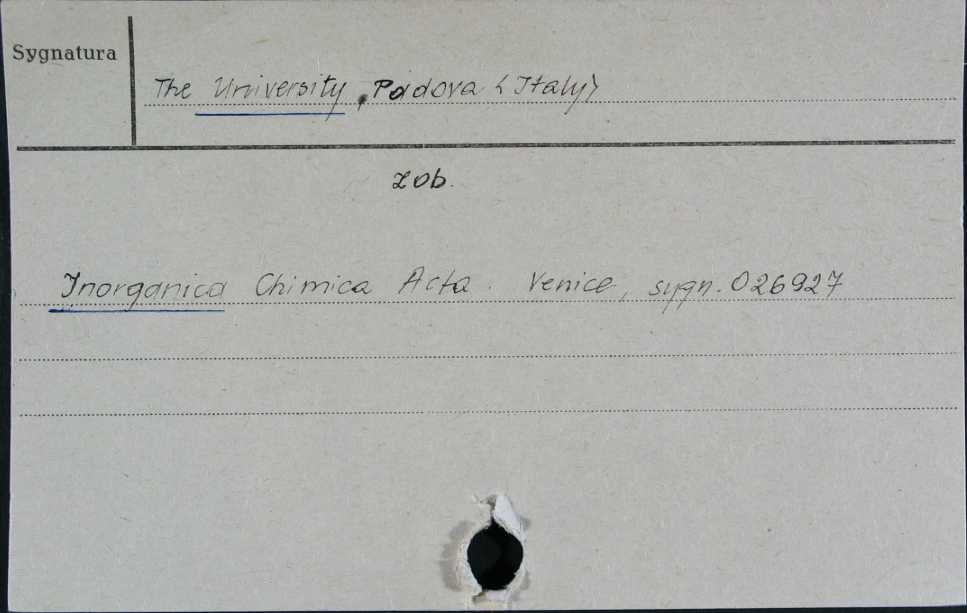 Sygnatura
The University, Padova <Italy>
zob.
Inorganica Chimica Acta. Venice, sygn. 026927